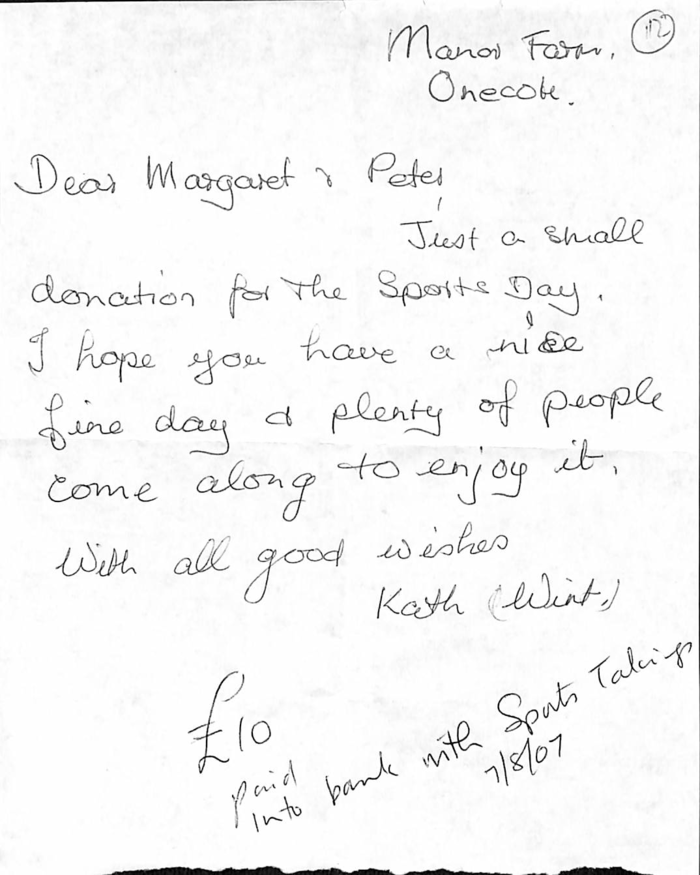 Manor Farm,
Onecote.
Dear Margaret & Peter,
Just a small
donation for the Sports Day.
I hope you have a nice
fine day & plenty of people
come along to enjoy it.
With all good wishes
Kath (Wint.)
£10
paid
into bank with Sports Takings
7/8/07